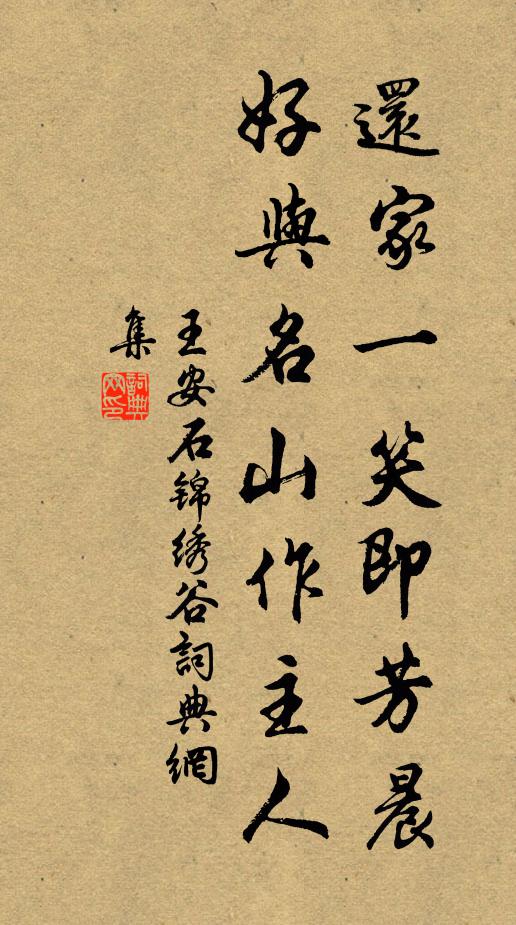 還家一笑即芳晨
好與名山作主人
王安石锦绣谷詞典網
集
詞典網印